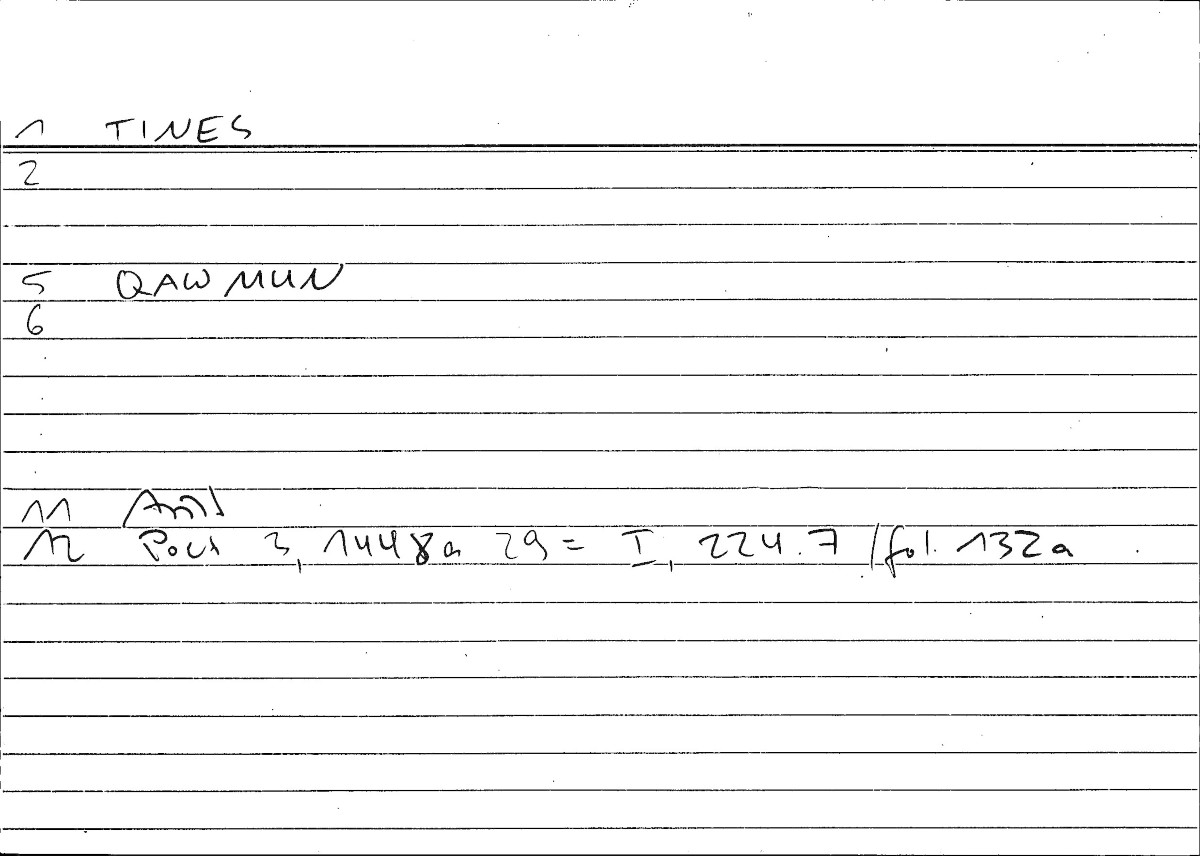 1 TINES
2
5 QAWMUN
6
11
12 3, 1448a 29 = I, 224.7 / fol. 132a